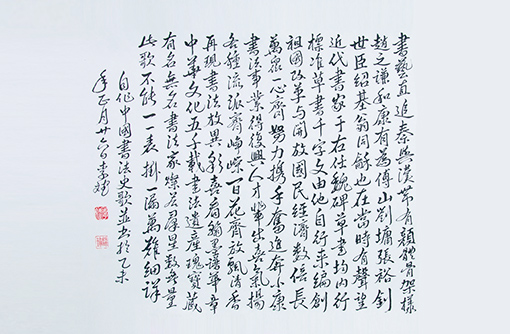 書藝直追秦與漢帶有顏體骨架樣
趙之謙和康有為傅山劉墉張裕釗
世臣紹基翁同龢也在當時有聲望
近代書家于右任魏碑草書均內行
標准草書千字文由他自行來編創
祖國改革与開放國民經濟數倍長
萬眾一心齊努力携手奮進奔小康
書法事業得復興人才輩出喜氣揚
各種流派齊崢嶸百花齊放飄清香
再現書法放異彩喜看翰墨譜華章
中華文化五千載書法遺產瑰寶藏
有名無名書法家燦若群星數無量
此歌不能一一表掛一漏萬難細詳
自作中國書法史歌並書於乙未
年正月廿六日李